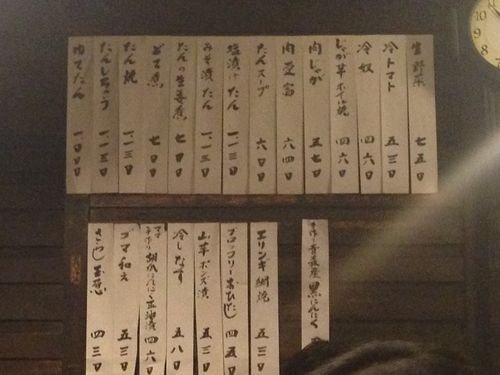 生野菜 七五〇
冷トマト 五三〇
冷奴 四六〇
じゃが芋ホイル焼 四六〇
肉じゃが 五七〇
肉豆富 六四〇
たんスープ 六〇〇
塩漬けたん 一、一三〇
みそ漬たん 一、一三〇
たんの生姜煮 七〇〇
どて煮 七〇〇
たん焼 一、一三〇
たんしちゅう 一、一三〇
ゆでたん 一、〇〇〇
手作り 青森産 黒にんにく
エリンギ網焼 五三〇
ブロッコリーおひたし 四五〇
山芋ポンズ漬 五三〇
冷しなす 五八〇
四六〇
ゴマ和え 五三〇
さらし玉葱 四三〇
10
9
8
7